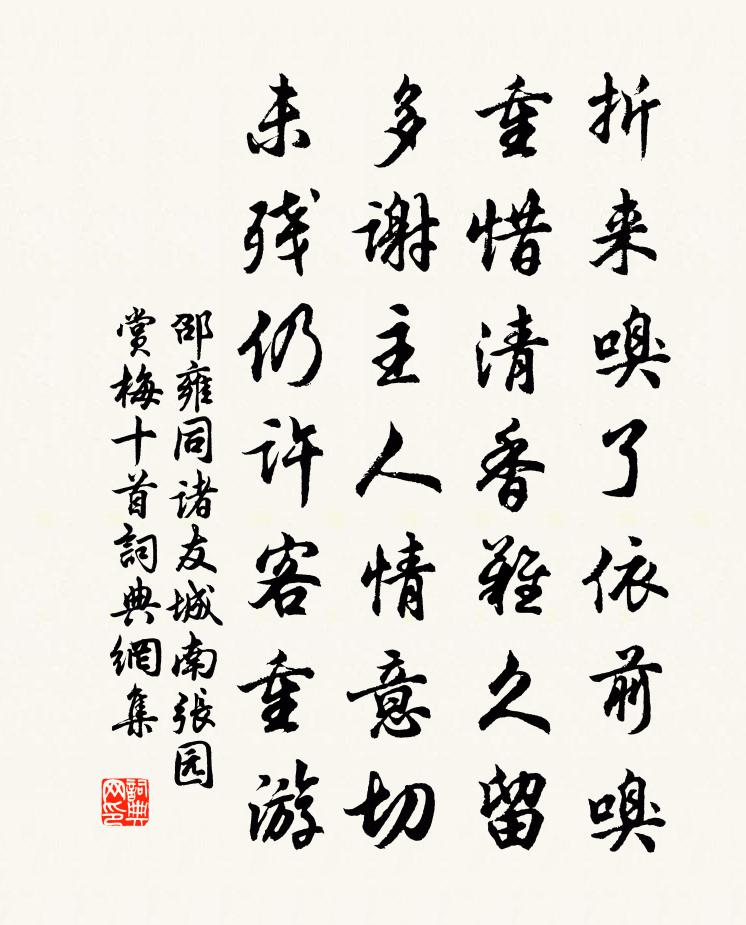 折来嗅了依前嗅
重惜清香難久留
多謝主人情意切
未残仍许客重游
邵雍同诸友城南張园
赏梅十首詞典網集
詞典网印